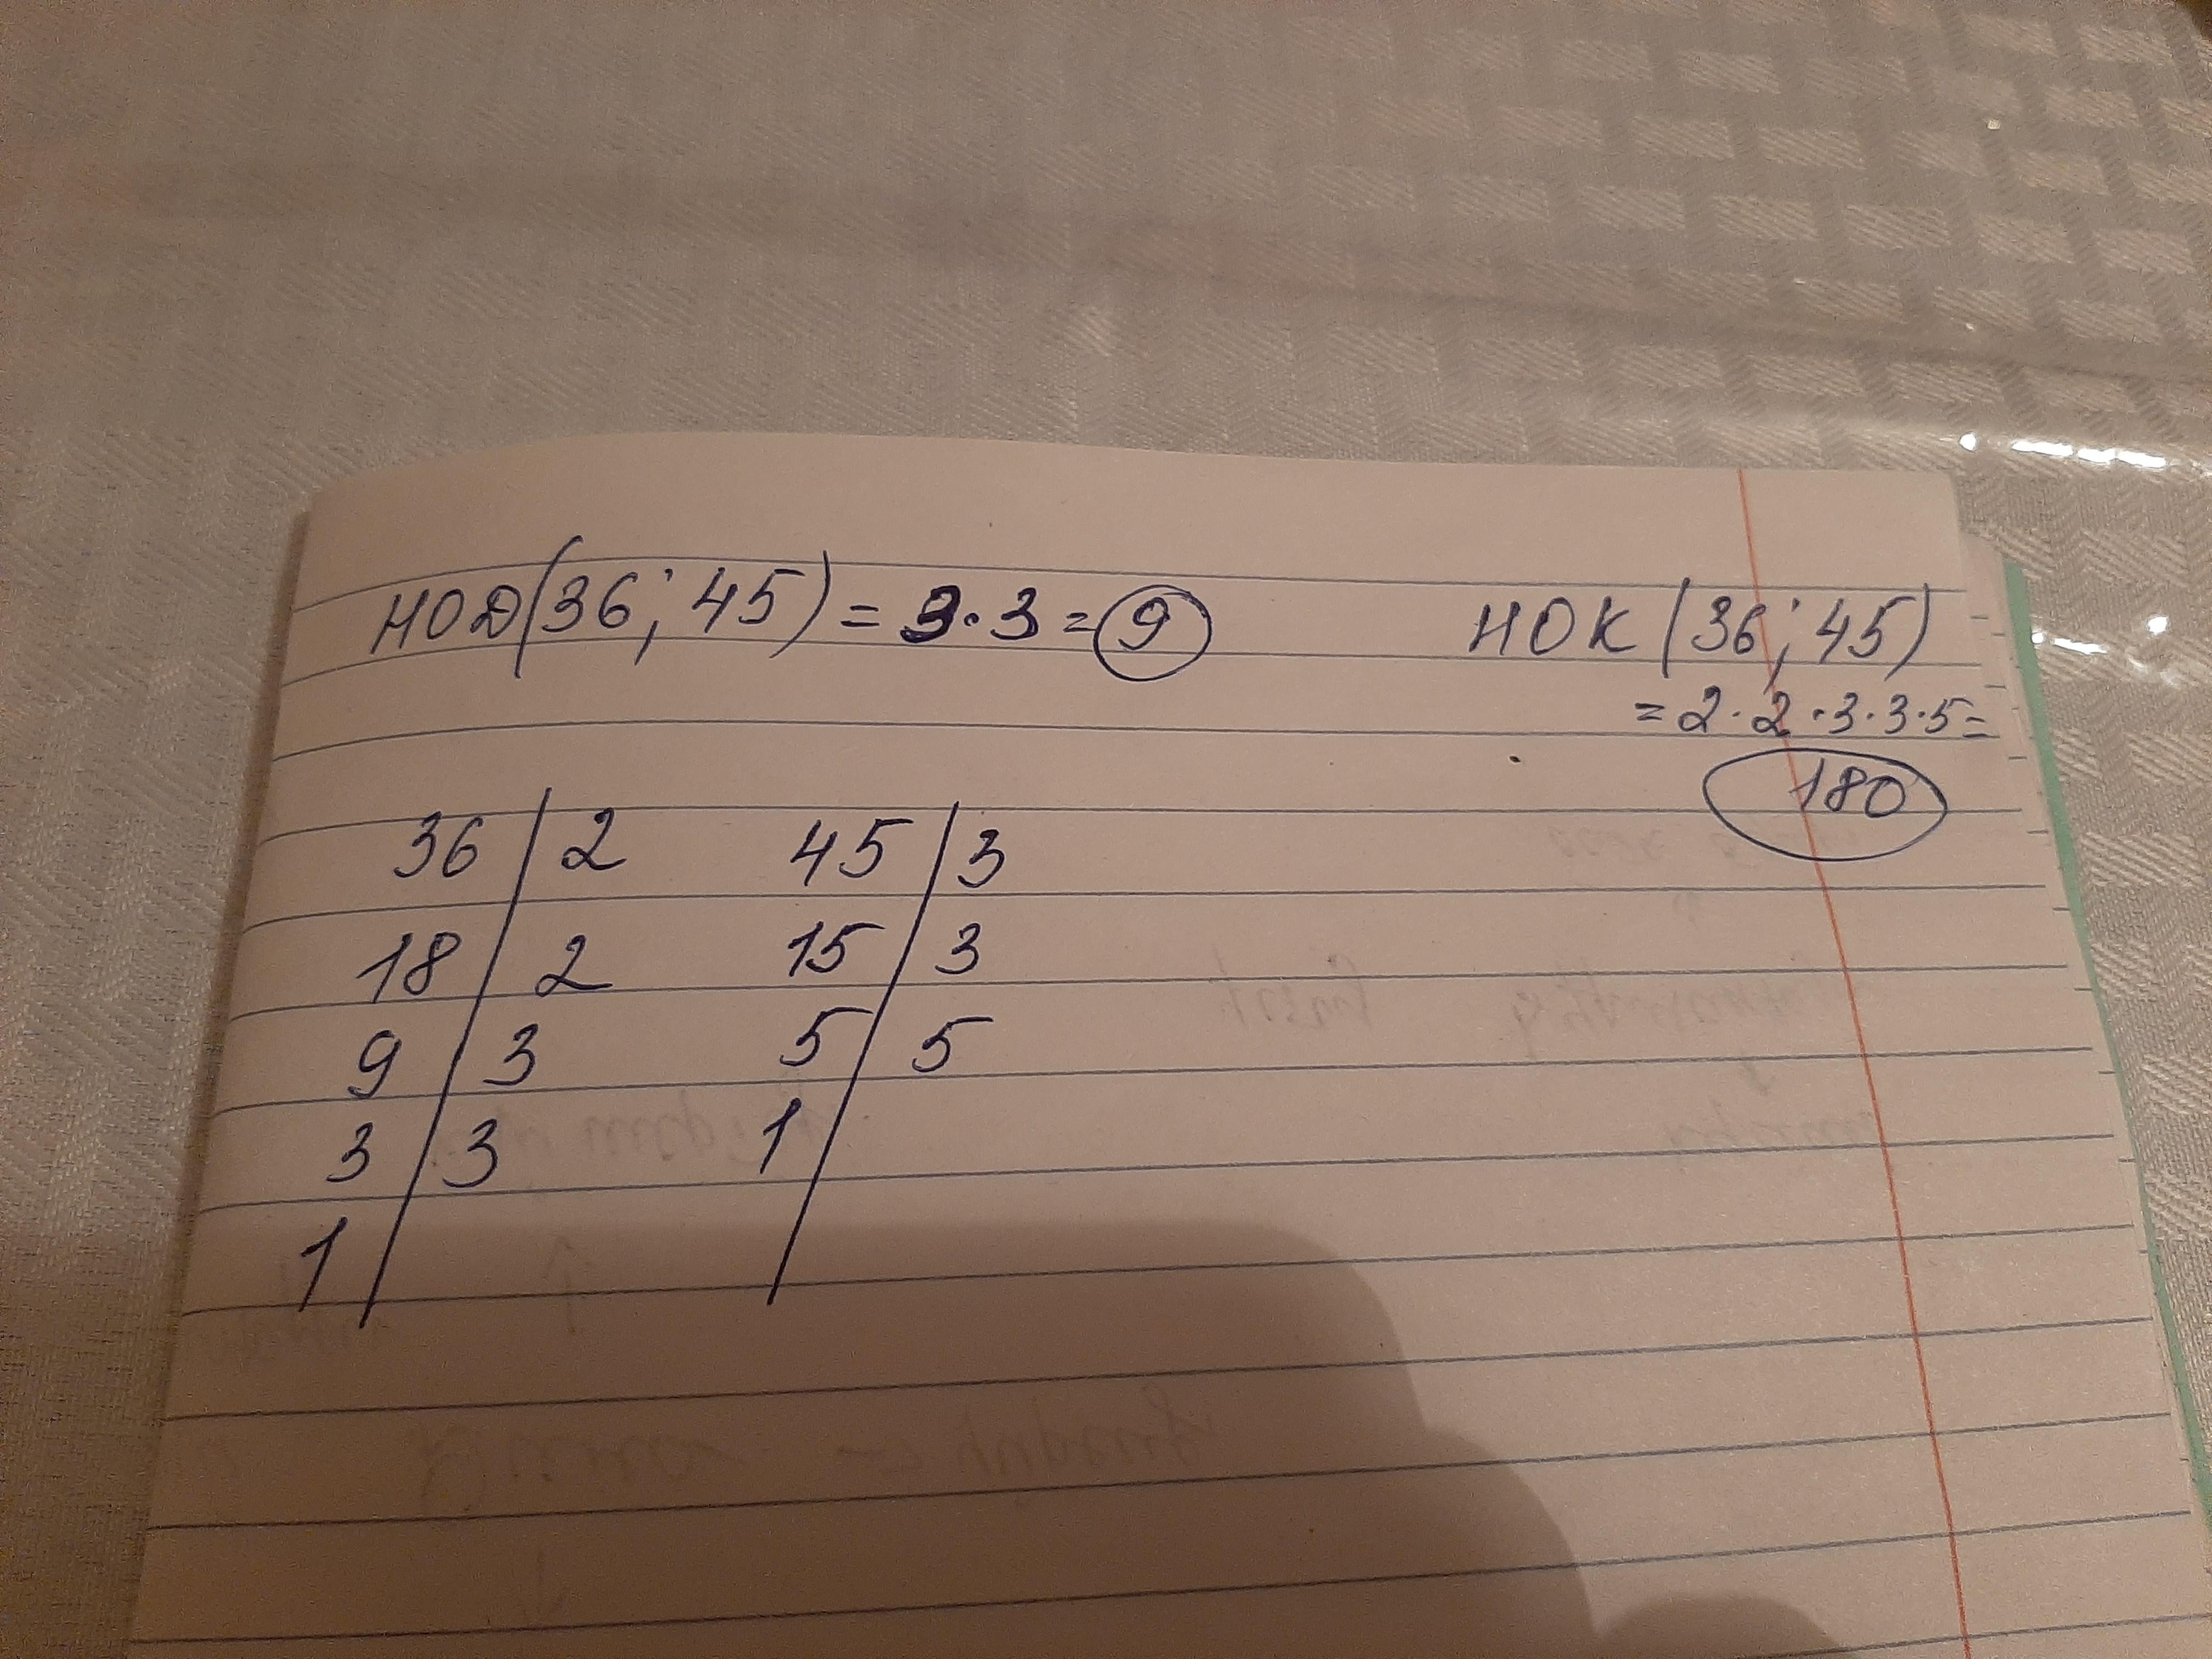 НОД(36; 45) = 3·3 = 9
НОК (36; 45)
= 2·2·3·3·5 =
180
36 | 2 45 | 3
18 | 2 15 | 3
9 | 3 5 | 5
3 | 3 1 |
1 |